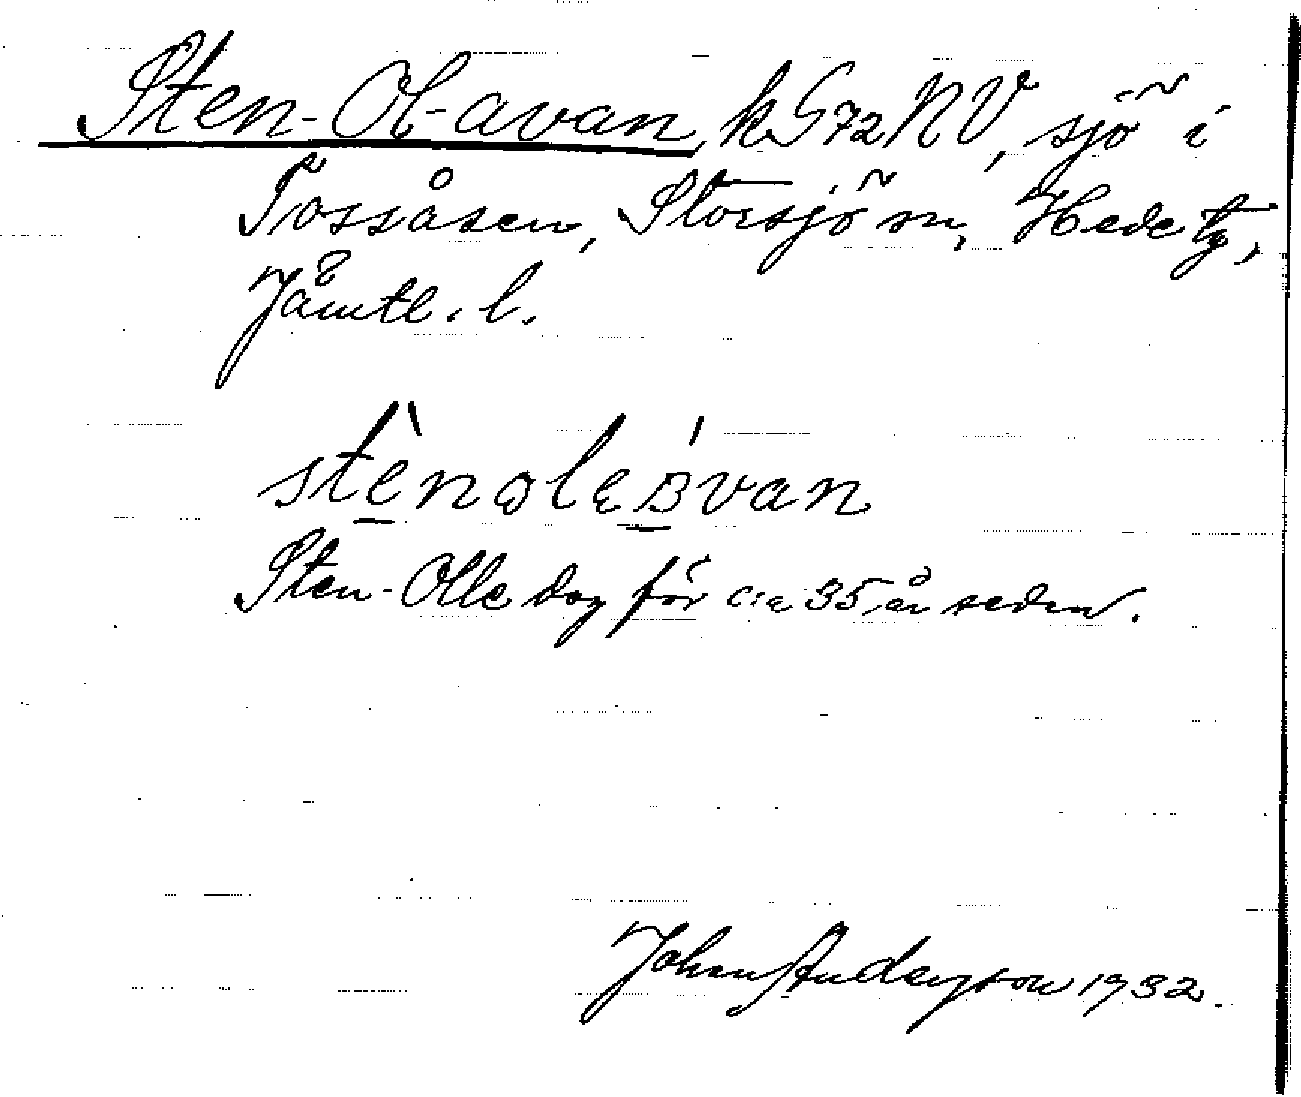 Sten-Ol-avan, k G72NV, sjö i
Tossåsen, Storsjö sn, Hede tg,
Jämtl. l.
stènoleávan
Sten-Olle dog för c:a 35 år sedan.
Johan Andersson 1932.